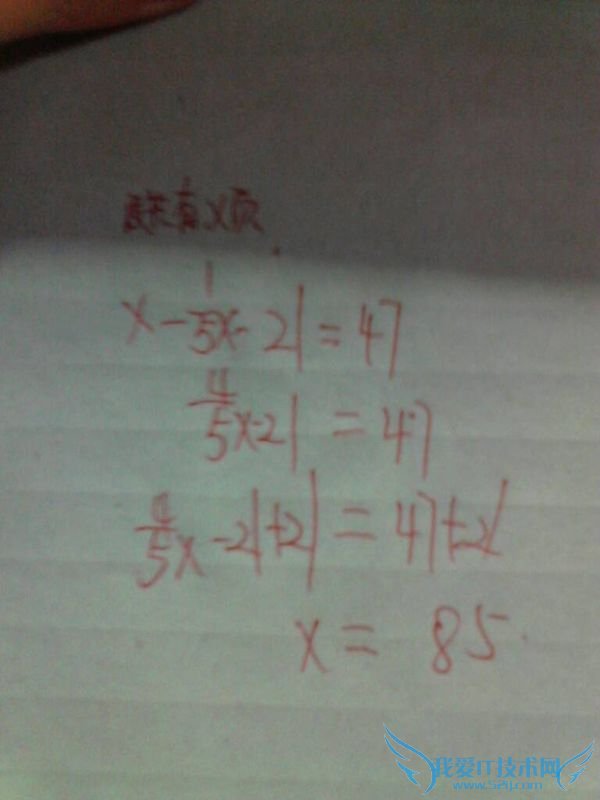 原来有X页
x-1/5x-21=47
4/5x-21=47
4/5x-21+21=47+21
x=85
我爱IT技术网
www.52ij.com